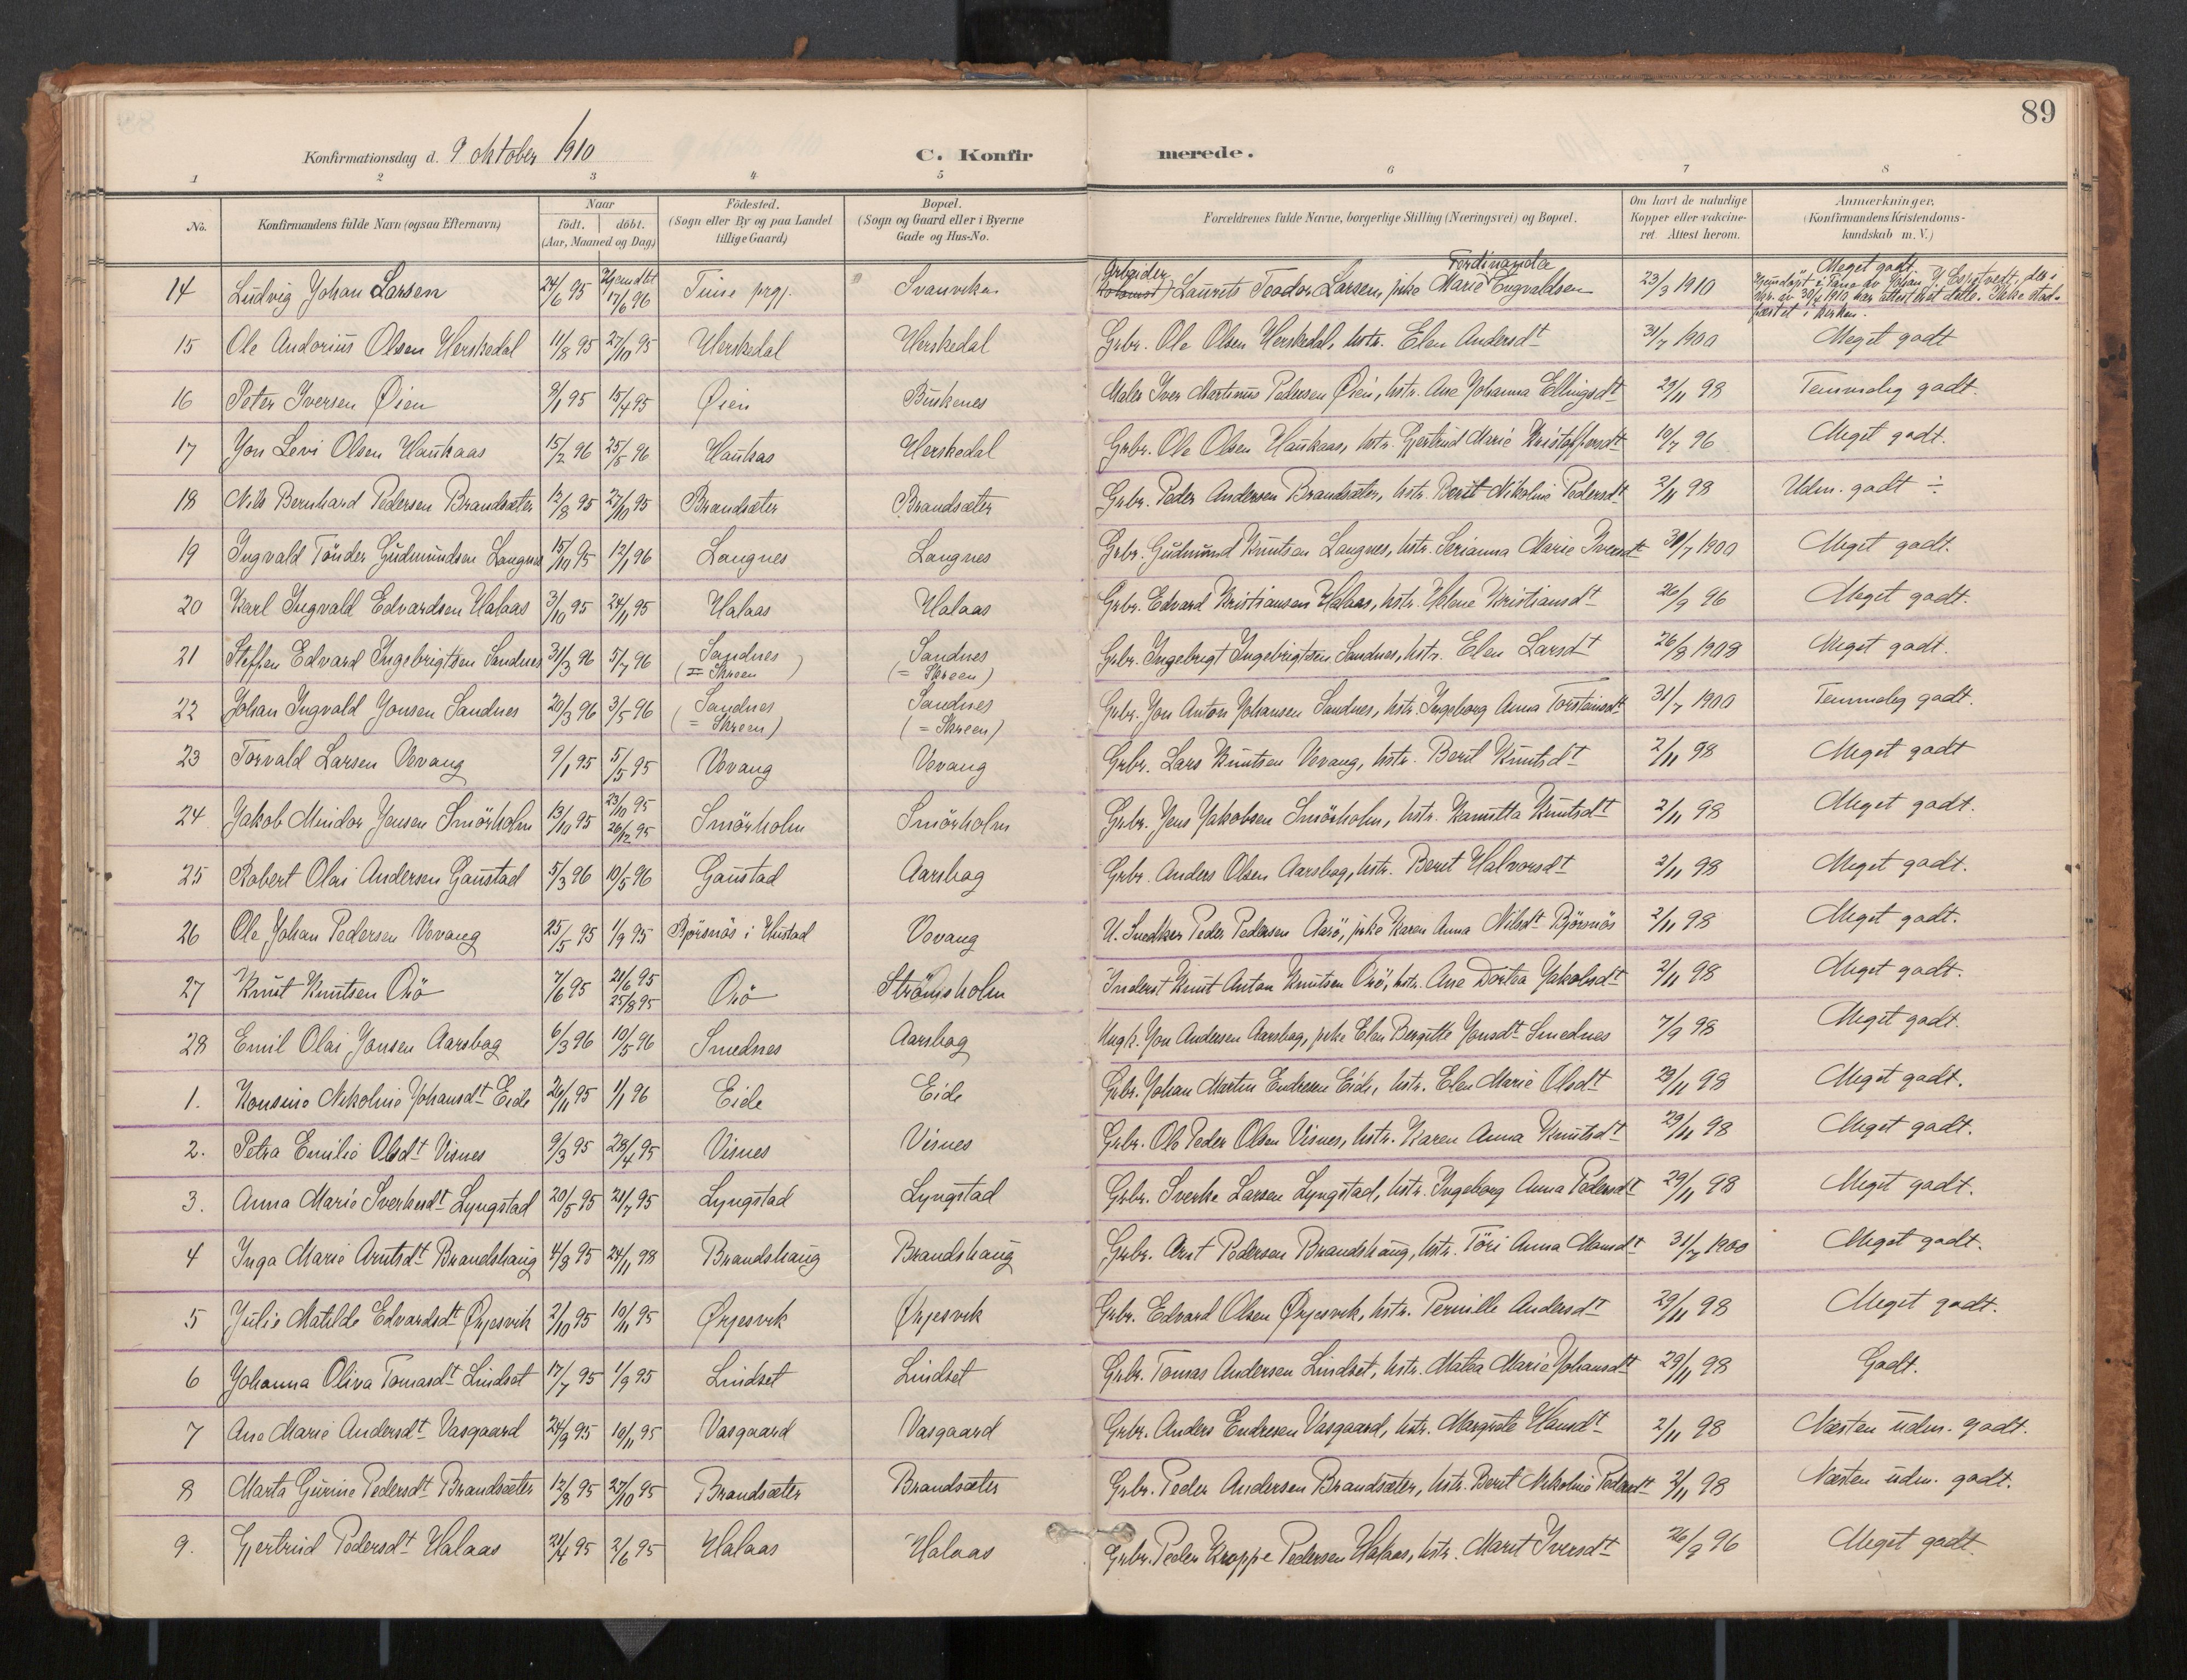 89
Konfirmationsdag d. 9 oktober 1910 C. Konfirmerede.
1 2 3 4 5 6 7 8
No. Konfirmandens fulde Navn (ogsaa Efternavn) Naar født. døbt. (Aar, Maaned og Dag) Fødested. (Sogn eller By og paa Landet tillige Gaard) Bopæl. (Sogn og Gaard eller i Byerne Gade og Hus-No. Forældrenes fulde Navne, borgerlige Stilling (Næringsvei) og Bopæl. Om havt de naturlige Kopper eller vakcineret. Attest herom. Anmærkninger. (Konfirmandens Kristendomskundskab m. V.)
14 Ludvig Johan Larsen 24/6 95 Hjemdbt 17/6 96 Tune prgj. Svanvika Arbeider Laurits Teodor Larsen, pike Marie Ferdinanda Engvaldsen 23/3 1910 Meget godt
15 Ole Andorius Olsen Herskedal 11/8 95 27/10 95 Herskedal Herskedal Grbr. Ole Olsen Herskedal, hstr. Elen Andersdt 31/7 1900 Meget godt
16 Peter Iversen Øien 9/1 95 15/4 95 Øien Buskenes Maler Iver Martinus Pedersen Øien, hstr. Ane Johanna Ellingsdt 29/11 98 Temmeleg godt.
17 Jon Levi Olsen Haukaas 15/2 96 25/5 96 Haukaas Herskedal Grbr. Ole Olsen Haukaas, hstr. Gjertrud Marie Kristoffersdt 10/7 96 Meget godt.
18 Nils Bernhard Pedersen Brandsæter 12/8 95 27/10 95 Brandsæter Brandsæter Grbr. Peder Andersen Brandsæter, hstr. Berit Nikoline Pedersdt 2/11 98 Udm. godt ÷
19 Ingvald Tönder Gudmundsen Langnes 15/10 95 12/1 96 Langnes Langnes Grbr. Gudmund Knutsen Langnes, hstr. Serianna Marie Iversdt 31/7 1900 Meget godt.
20 Karl Ingvald Edvardsen Halaas 3/10 95 24/11 95 Halaas Halaas Grbr. Edvard Kristiansen Halaas, hstr. Helene Kristiansdt 26/9 96 Meget godt.
21 Steffen Edvard Ingebrigtsen Sandnes 31/3 96 5/7 96 Sandnes (= Skreen) Sandnes (= Skreen) Grbr. Ingebrigt Ingebrigtsen Sandnes, hstr. Elen Larsdt 26/8 1908 Meget godt.
22 Johan Ingvald Jonsen Sandnes 20/3 96 3/5 96 Sandnes (= Skreen) Sandnes (= Skreen) Grbr. Jon Anton Johansen Sandnes, hstr. Ingeborg Anna Torsteinsdt 31/7 1900 Temmeleg godt.
23 Torvald Larsen Vevang 9/1 95 5/5 95 Vevang Vevang Grbr. Lars Knutsen Vevang, hstr. Berit Knutsdt 2/11 98 Meget godt
24 Jakob Mindor Jensen Smörholm 13/10 95 23/10 95 26/12 95 Smörholm Smörholm Grbr. Jens Jakobsen Smörholm, hstr. Kanutta Knutsdt 2/11 98 Meget godt.
25 Robert Olai Andersen Gaustad 5/3 96 10/5 96 Gaustad Aarsbog Grbr. Anders Olsen Aarsbog, hstr. Berit Halvorsdt 2/11 98 Meget godt.
26 Ole Johan Pedersen Vevang 25/5 95 1/9 95 Björnsös i Hustad Vevang U. Snedker Peder Pedersen Aarö, pike Karen Anna Nilsdt Björnsös 2/11 98 Meget godt.
27 Knut Knutsen Orö 7/6 95 21/6 95 25/8 95 Orö Strömsholm Inderst Knut Anton Knutsen Orö, hstr. Ane Dortea Jakobsdt 2/11 98 Meget godt.
28 Emil Olai Jonsen Aarsbog 6/3 96 10/5 96 Smednes Aarsbog Ungk. Jon Andersen Aarsbog, pike Elen Bergitte Jonsdt Smednes 7/9 98 Meget godt.
1. Konsine Nikoline Johansdt Eide 26/11 95 1/1 96 Eide Eide Grbr. Johan Martin Endresen Eide, hstr. Elen Marie Olsdt 29/11 98 Meget godt.
2. Petra Emilie Olsdt Visnes 9/3 95 28/4 95 Visnes Visnes Grbr. Ole Peder Olsen Visnes, hstr. Karen Anna Knutsdt 29/11 98 Meget godt.
3. Anna Marie Sverkesdt Lyngstad 20/5 95 21/7 95 Lyngstad Lyngstad Grbr. Sverke Larsen Lyngstad, hstr. Ingeborg Anna Pedersdt 29/11 98 Meget godt.
4 Inga Marie Arntsdt Brandshaug 4/8 95 24/11 98 Brandshaug Brandshaug Grbr. Arnt Pedersen Brandshaug, hstr. Töri Anna Monsdt 31/7 1900 Meget godt.
5 Julie Matilde Edvardsdt Ørjesvik 2/10 95 10/11 95 Ørjesvik Ørjesvik Grbr. Edvard Olsen Ørjesvik, hstr. Pernille Andersdt 29/11 98 Meget godt.
6 Johanna Oliva Tomasdt Lindset 17/7 95 1/9 95 Lindset Lindset Grbr. Tomas Andersen Lindset, hstr. Matea Marie Johansdt 29/11 98 Godt.
7 Ane Marie Andersdt Vasgaard 24/9 95 10/11 95 Vasgaard Vasgaard Grbr. Anders Endresen Vasgaard, hstr. Margrete Hansdt 2/11 98 Næsten udm. godt.
8 Marta Gurine Pedersdt Brandsæter 12/8 95 27/10 95 Brandsæter Brandsæter Grbr. Peder Andersen Brandsæter, hstr. Berit Nikoline Pedersdt 2/11 98 Næsten udm. godt.
9. Gjertrud Pedersdt Halaas 21/4 95 2/6 95 Halaas Halaas Grbr. Peder Kroppe Pedersen Halaas, hstr. Marit Iversdt 26/9 96 Meget godt.